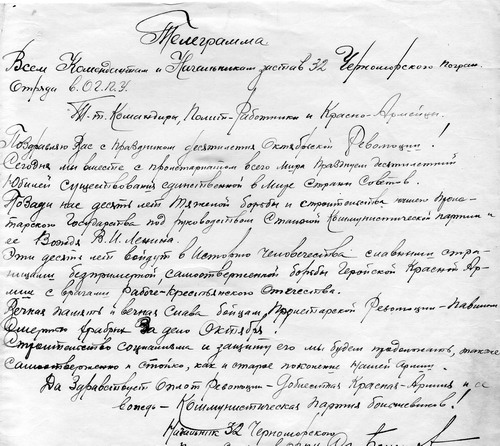 Телеграмма
Всем Комендантам и Начальникам застав 32 Черноморского Погран.
Отряда В.О.Г.П.У.
Т-т. Командиры, Полит-Работники и Красно-Армейцы.
Поздравляю Вас с Праздником десятилетия Октябрьской Революции!
Сегодня мы вместе с пролетариатом всего Мира празднуем десятилетний
Юбилей Существования единственной в Мире Страны Советов.
Позади нас десять лет Тяжелой борьбы и строительства нашего Проле-
тарского Государства под руководством Стальной Коммунистической партии и
ее Вождя В.И. Ленина.
Эти десять лет войдут в Историю Человечества славными стра-
ницами беспримерной, самоотверженной борьбы Геройской Красной Ар-
мии с врагами Рабоче-Крестьянского Отечества.
Вечная Память и вечная Слава бойцам Пролетарской Революции - Павшим
Смертью храбрых За дело Октября!
Строительство социализма и защиту его мы будем продолжать, также
самоотверженно и стойко, как и старое поколение Нашей Армии.
Да Здравствует Оплот Революции - Доблестная Красная-Армия и ее
Коммунистическая Партия большевиков!
Начальник 32 Черноморского